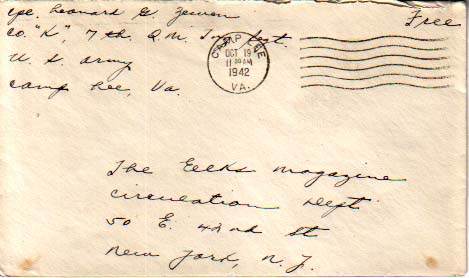 Cpl. Leonard G.
Free
Co. "K", 7th Q.M. Tng. Regt.
U. S. Army
Camp Lee, Va.
CAMP LEE
OCT 19
11 30 AM
1942
VA.
The Elks Magazine
Circulation Dept
50 E. 42nd St
New York, N. Y.